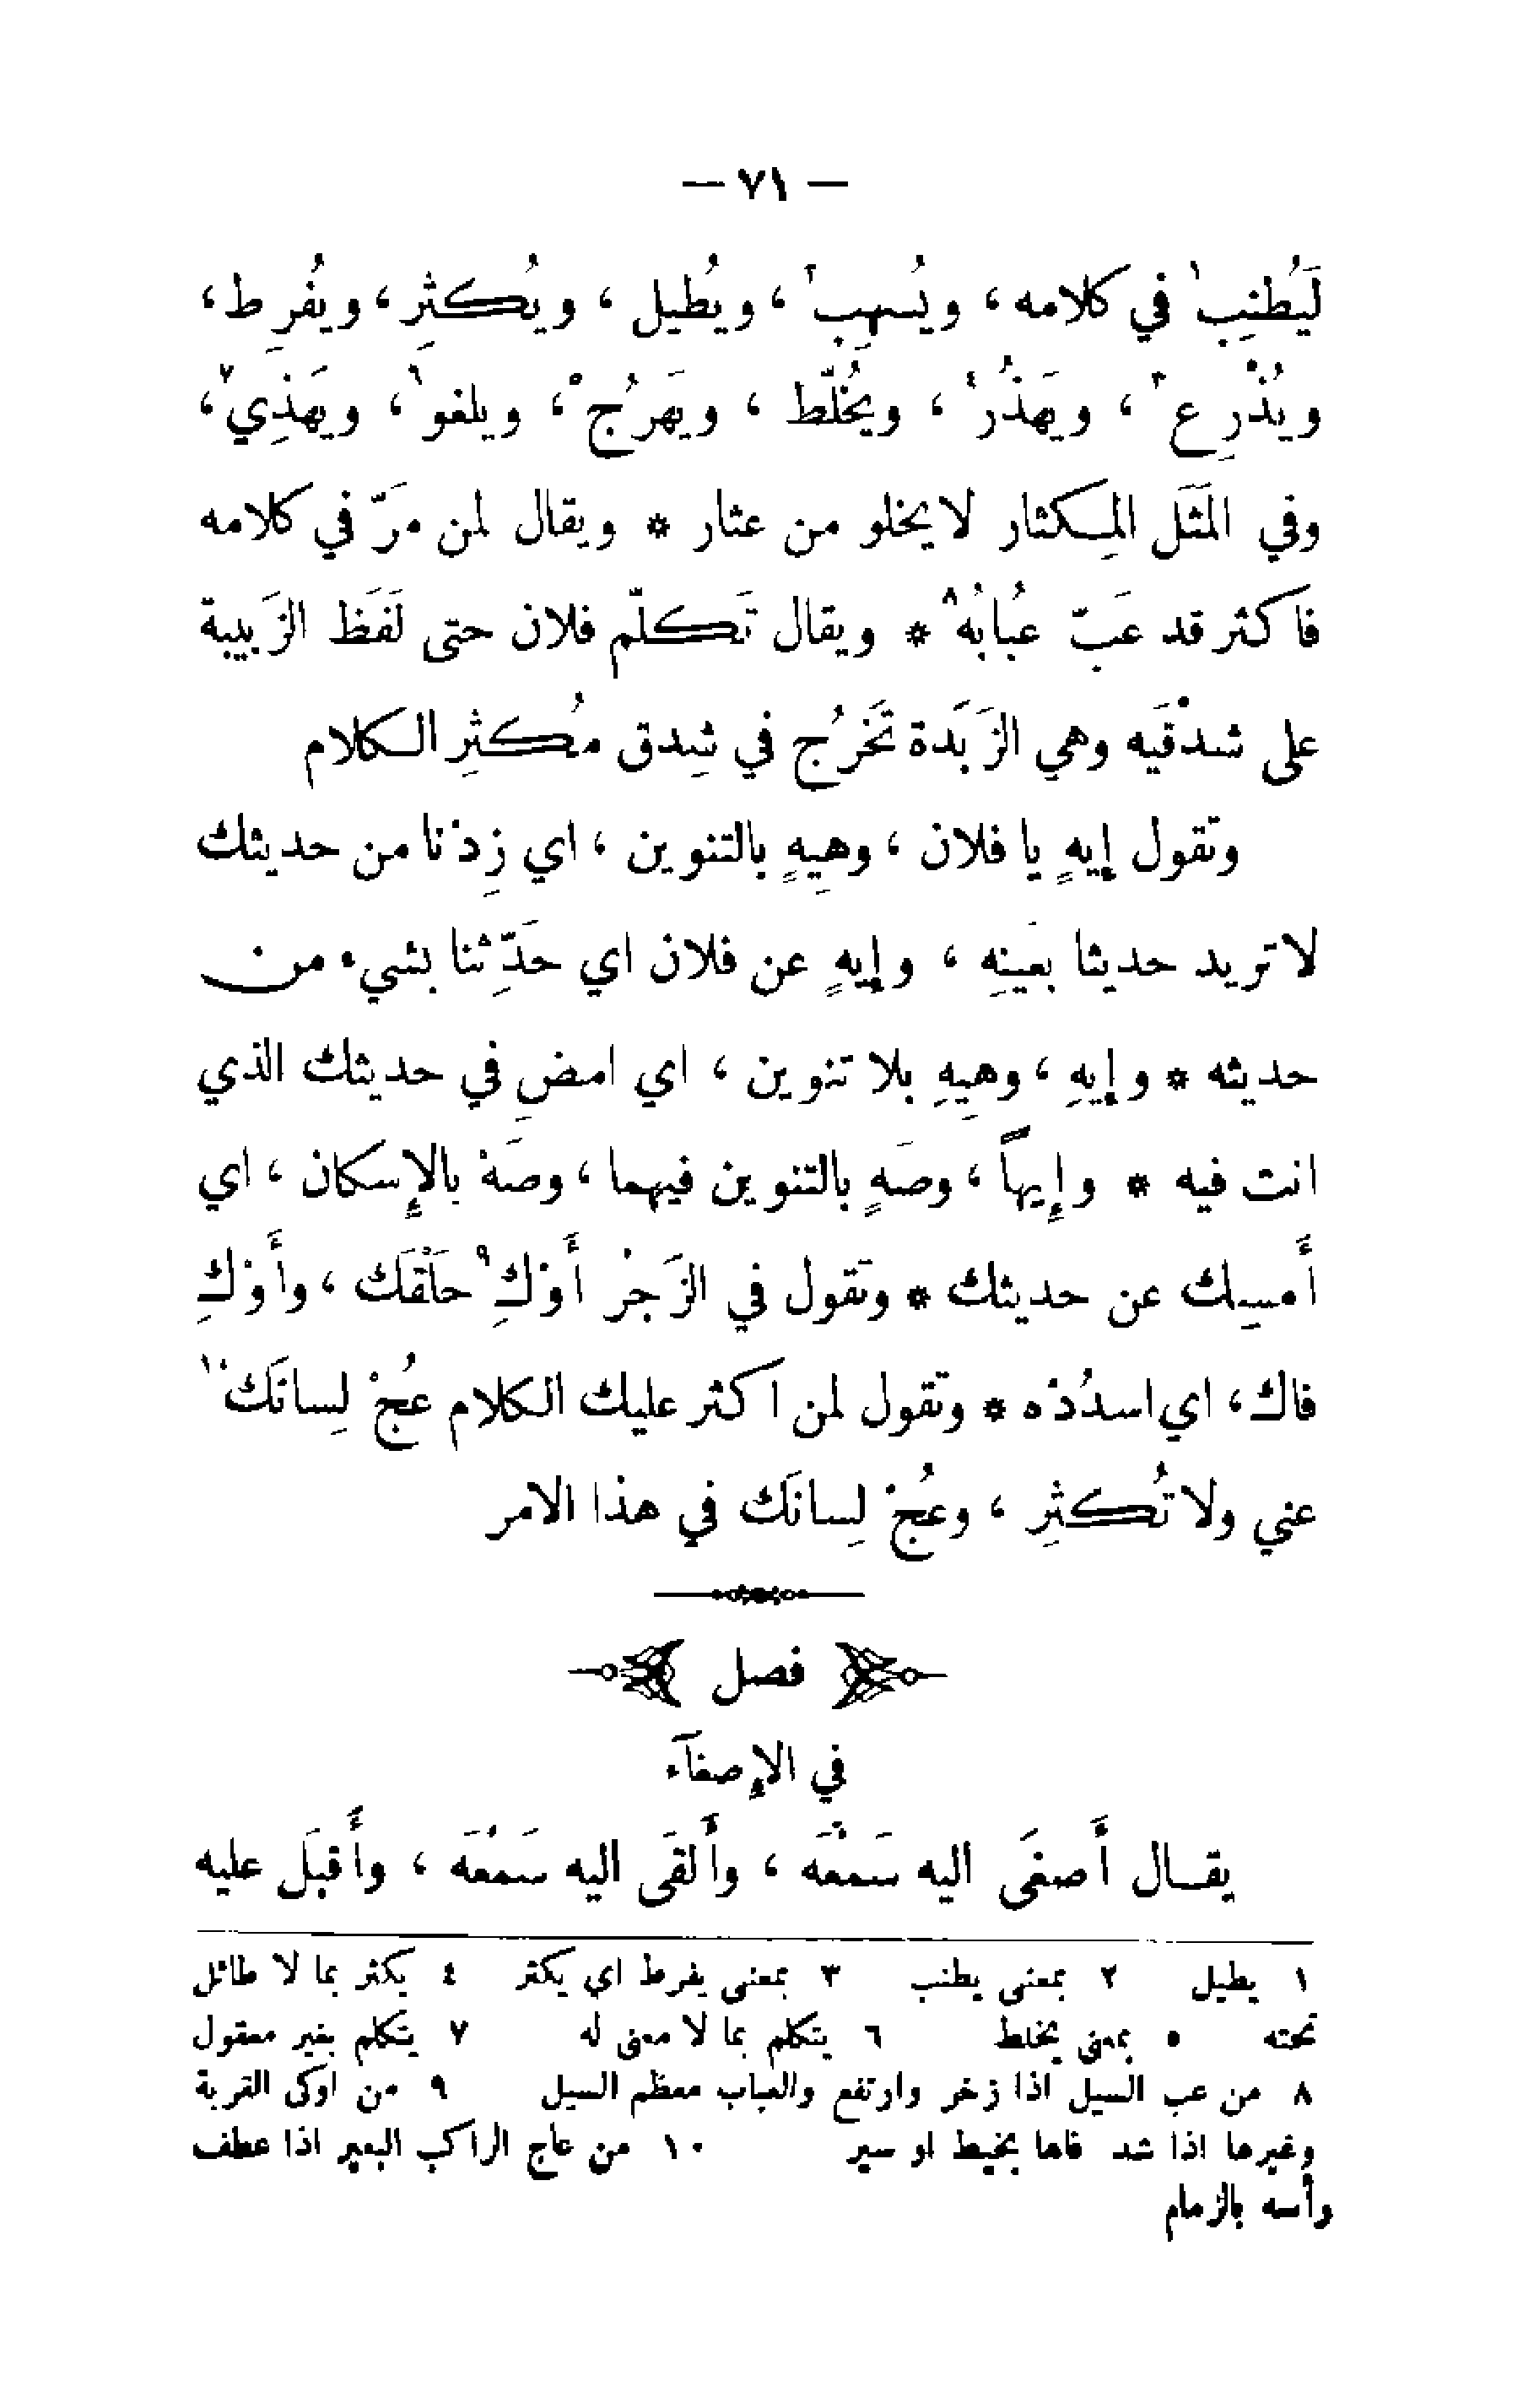 — ٧١ —
لَيُطنِب١ في كلامه ، ويُسهِب٢ ، ويُطيل ، ويُكثِر ، ويُفرِط ،
ويُذْرِع٣ ، ويَهذُر٤ ، ويُخَلّط ، ويَهرُج٥ ، ويلغو٦ ، ويَهذِي٧ ،
وفي المَثَل المِكثار لا يخلو من عثار * ويقال لمن مَرّ في كلامه
فاكثر قد عَبّ عُبابُه٨ * ويقال تَكلّم فلان حتى لَفَظ الزَبيبة
على شدْقَيه وهي الزَبَدة تَخرُج في شِدق مُكثِر الكلام
وتقول إيهٍ يا فلان ، وهِيهٍ بالتنوين ، اي زِدْنا من حديثك
لا تريد حديثا بعَينِه ، وإيهٍ عن فلان اي حَدِّثْنا بشيء من
حديثه * وإيهِ ، وهِيهِ بلا تنوين ، اي امضِ في حديثك الذي
انت فيه * وإيهاً ، وصَهٍ بالتنوين فيهما ، وصَهْ بالإسكان ، اي
أَمسِك عن حديثك * وتقول في الزَجْر أَوْكِ٩ حَلْقَك ، وأَوْكِ
فاك ، اي اسدُدْه * وتقول لمن اكثر عليك الكلام عُجْ لِسانَك١٠
عني ولا تُكثِر ، وعُجْ لِسانَك في هذا الامر
فصل
في الإصغآء
يقال أَصغَى اليه سَمْعَه ، وأَلقَى اليه سَمْعَه ، وأَقبَل عليه
١ يطيل ٢ بمعنى يطنب ٣ بمعنى يفرط اي يكثر ٤ يكثر بما لا طائل
تحته ٥ بمعنى يخلط ٦ يتكلم بما لا معنى له ٧ يتكلم بغير معقول
٨ من عب السيل اذا زخر وارتفع والعباب معظم السيل ٩ من اوكى القربة
وغيرها اذا شد فاها بخيط او سير ١٠ من عاج الراكب البعير اذا عطف
رأسه بالزمام